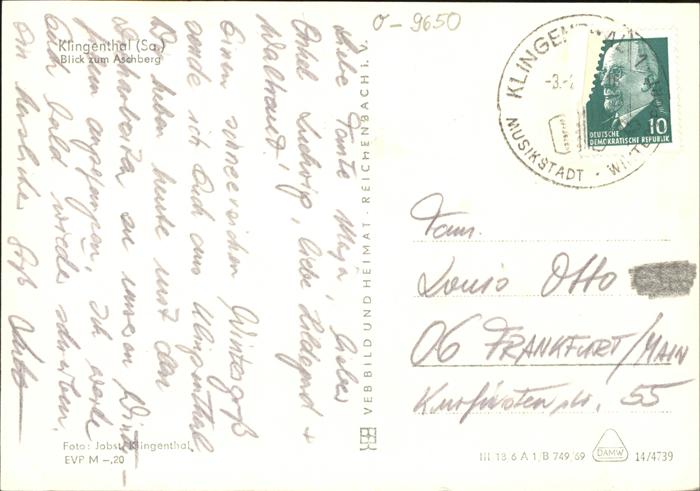 O-9650
Klingenthal (Sa.)
Blick zum Aschberg
Liebe Tante Maja, lieber
Onkel Ludwig, liebe Hildegard +
Waltraut!
Einen schneereichen Wintergruß
sende ich Euch aus Klingenthal
Wir haben heute mit den
an unserem
angefangen. Ich werde
Euch bald wieder schreiben.
Ein herzlicher Gruß
Foto: Jobst, Klingenthal
EVP M –,20
VEB BILD UND HEIMAT · REICHENBACH I. V.
KLINGENTHAL
-3.-
MUSIKSTADT · WINTER
10
DEUTSCHE
DEMOKRATISCHE REPUBLIK
Fam.
Louis Otto
06 FRANKFURT/MAIN
Kurfürstenstr. 55
III 18 6 A 1/B 749/69 DAMW 14/4739